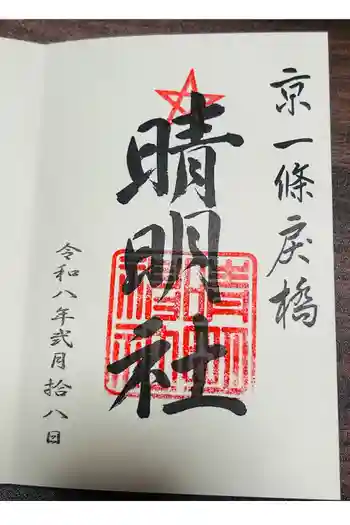 京一條戻橋
晴明社
令和八年弐月拾八日